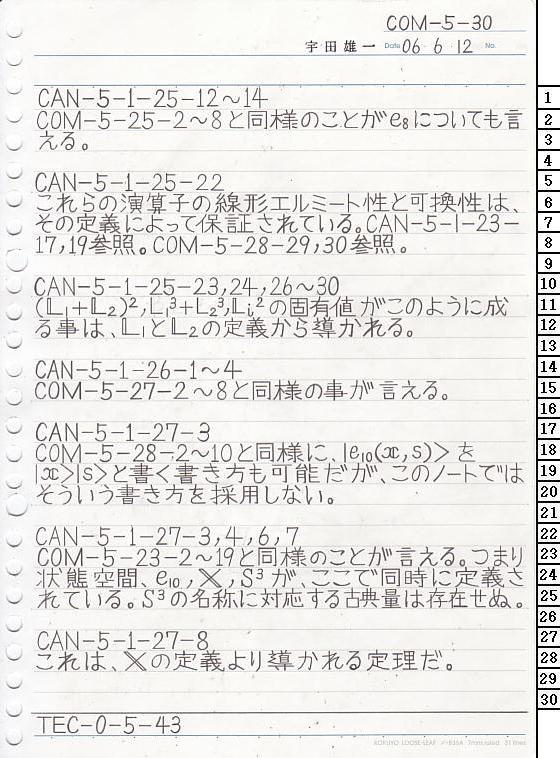 COM-5-30
宇田雄一 Date 06・6・12 No.
CAN-5-1-25-12～14
COM-5-25-2～8と同様のことがe₈についても言
える。
CAN-5-1-25-22
これらの演算子の線形エルミート性と可換性は、
その定義によって保証されている。CAN-5-1-23-
17,19参照。COM-5-28-29,30参照。
CAN-5-1-25-23,24,26～30
(𝕃₁+𝕃₂)²,𝕃₁³+𝕃₂³,𝕃ᵢ²の固有値がこのように成
る事は、𝕃₁と𝕃₂の定義から導かれる。
CAN-5-1-26-1～4
COM-5-27-2～8と同様の事が言える。
CAN-5-1-27-3
COM-5-28-2～10と同様に、|e₁₀(x,s)>を
|x>|s>と書く書き方も可能だが、このノートでは
そういう書き方を採用しない。
CAN-5-1-27-3,4,6,7
COM-5-23-2～19と同様のことが言える。つまり
状態空間、e₁₀,𝕏,S³が、ここで同時に定義さ
れている。S³の名称に対応する古典量は存在せぬ。
CAN-5-1-27-8
これは、𝕏の定義より導かれる定理だ。
TEC-0-5-43
KOKUYO LOOSE-LEAF ノ-836A 7mm ruled 31 lines
1
2
3
4
5
6
7
8
9
10
11
12
13
14
15
16
17
18
19
20
21
22
23
24
25
26
27
28
29
30